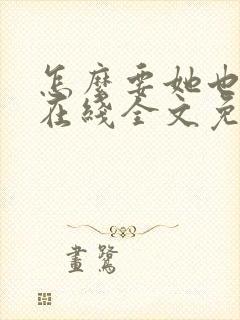 怎麼要她也
在綫全文免
畫鷺